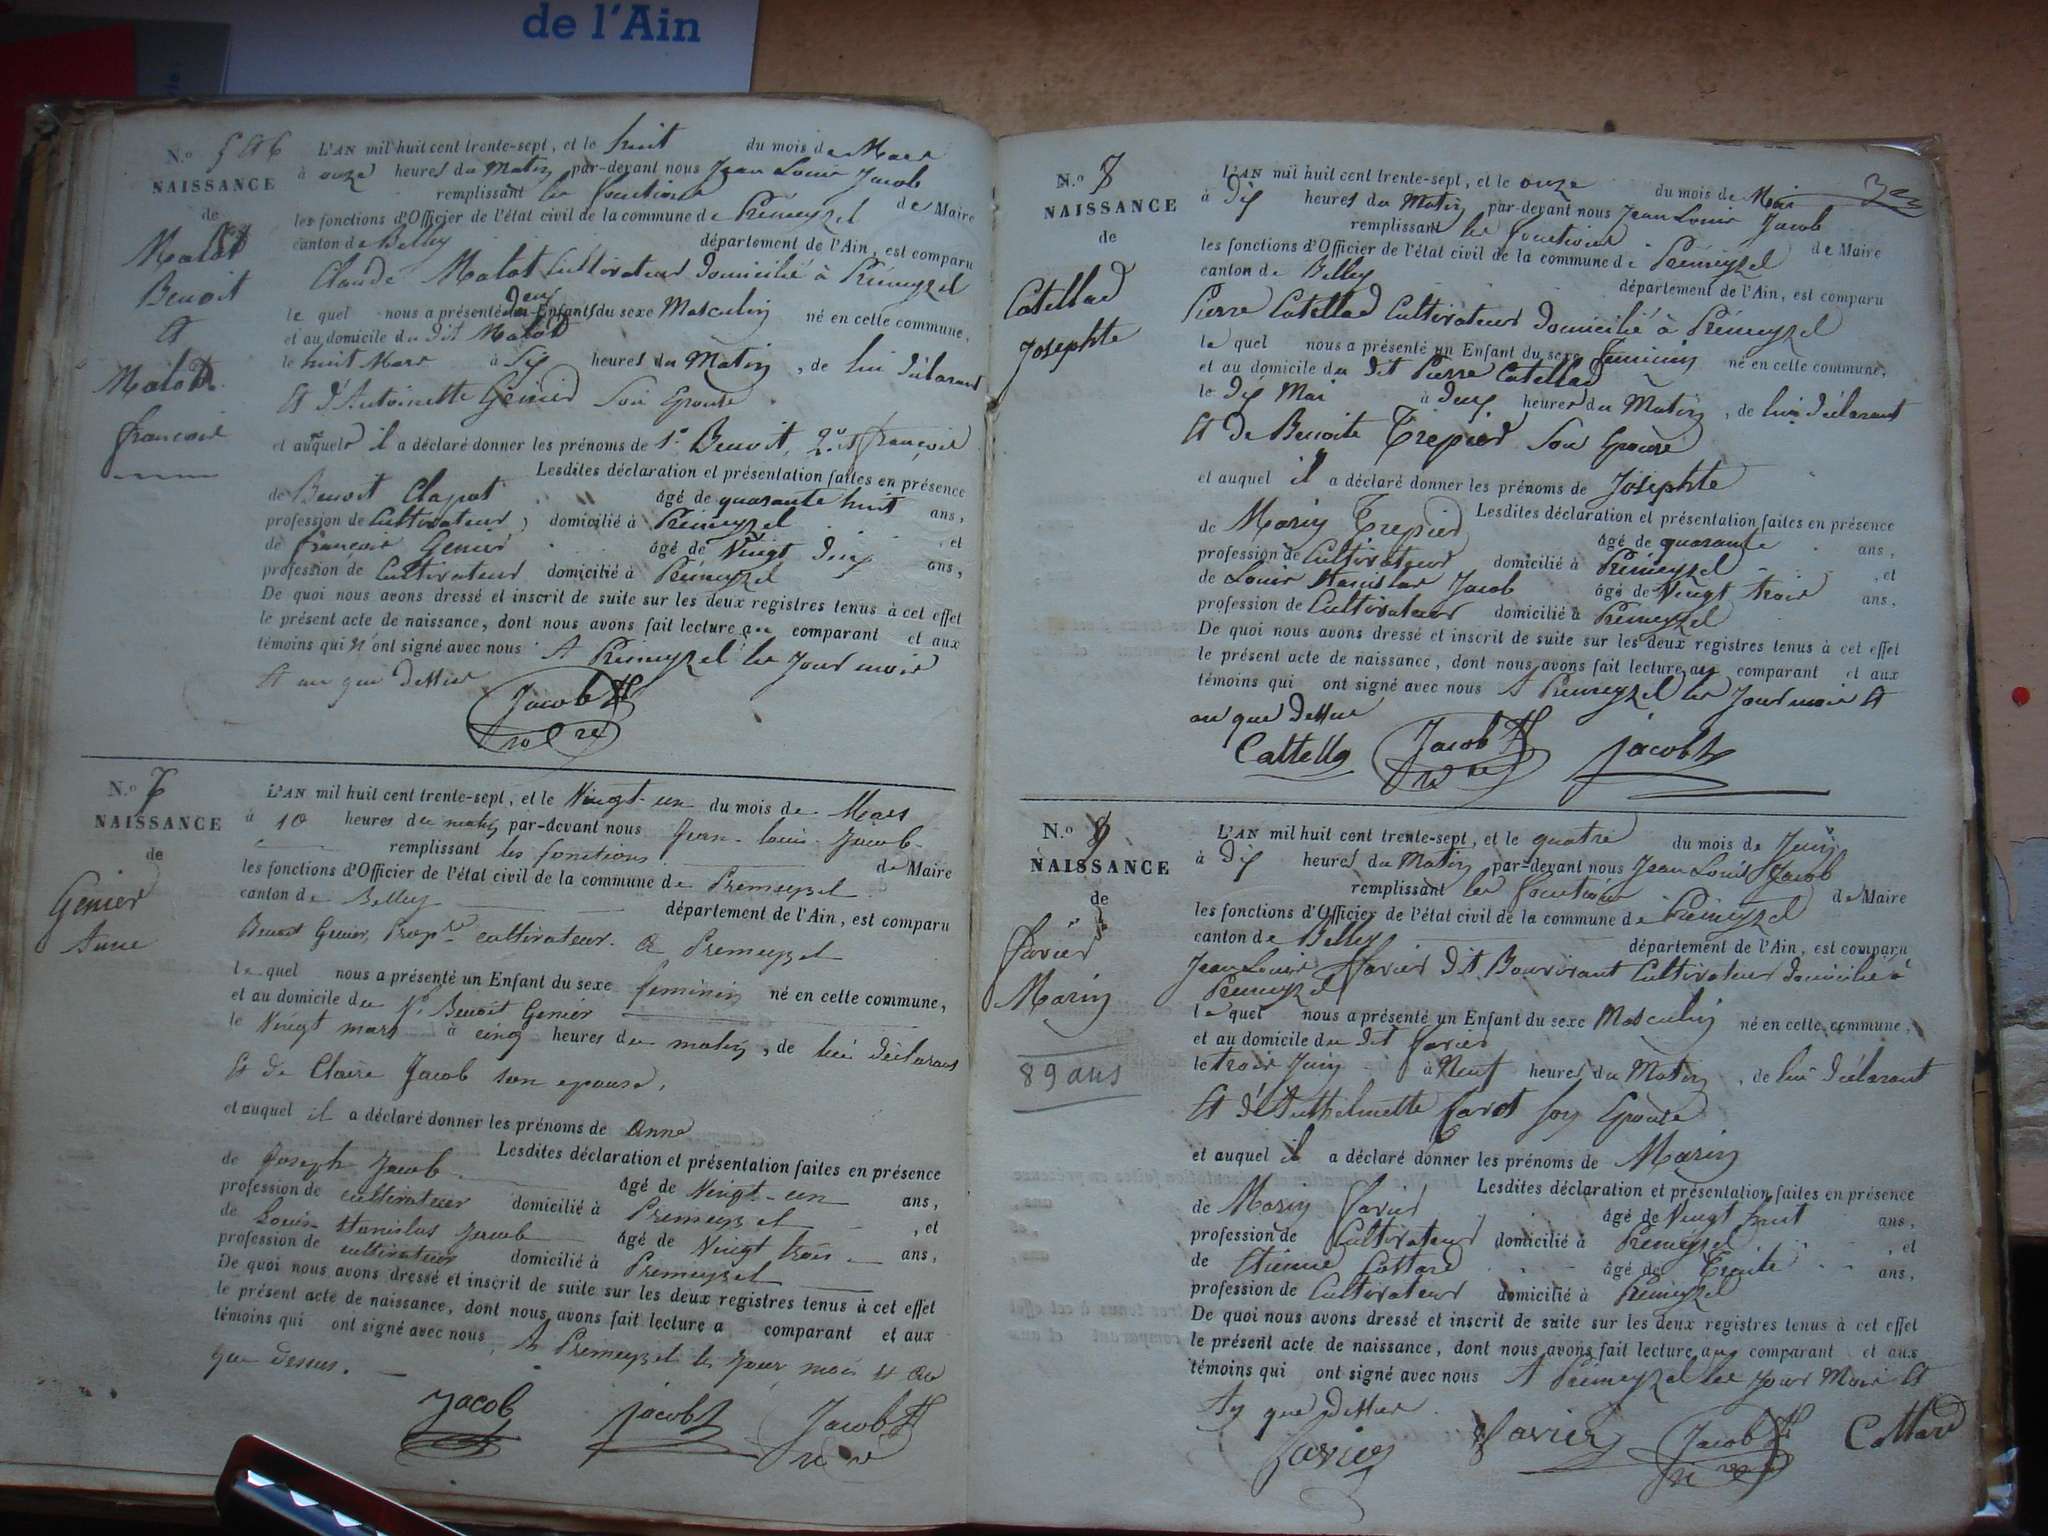 de l'Ain
N.o 5 et 6
NAISSANCE
de
Malot
Benoit
et
Malot
françois
L'AN mil huit cent trente-sept, et le huit du mois de Mars
à onze heures du Matin par-devant nous Jean Louis Jacob
remplissant les fonctions de Maire
les fonctions d'Officier de l'état civil de la commune de Prémeyzel
canton de Belley département de l'Ain, est comparu
Claude Malot Cultivateur domicilié à Prémeyzel
le quel nous a présenté deux Enfants du sexe Masculin né en cette commune,
et au domicile du dit Malot
le huit Mars à Six heures du Matin, de lui déclarant
Et d'Antoinette Genier Son Epouse
et auquels il a déclaré donner les prénoms de 1.o Benoit, 2.o et françois
Lesdites déclaration et présentation faites en présence
de Benoit Clapot âgé de quarante huit ans,
profession de Cultivateur, domicilié à Prémeyzel, et
de françois Genier âgé de Vingt ans,
profession de Cultivateur domicilié à Prémeyzel
De quoi nous avons dressé et inscrit de suite sur les deux registres tenus à cet effet
le présent acte de naissance, dont nous avons fait lecture au comparant et aux
témoins qui n'ont signé avec nous A Prémeyzel les Jour mois
Et an que dessus
Jacob
N.o 7
NAISSANCE
de
Genier
Anne
L'AN mil huit cent trente-sept, et le Vingt-un du mois de Mars
à 10 heures du matin par-devant nous Jean-louis-Jacob
remplissant les fonctions de Maire
les fonctions d'Officier de l'état civil de la commune de Premeyzel
canton de Belley département de l'Ain, est comparu
Benoit Genier, Prop.re cultivateur. a Premeyzel
le quel nous a présenté un Enfant du sexe feminin né en cette commune,
et au domicile du Benoit Genier
le Vingt mars à cinq heures du matin, de lui déclarant
Et de Claire Jacob son epouse,
et auquel il a déclaré donner les prénoms de anne
Lesdites déclaration et présentation faites en présence
de Joseph Jacob âgé de Vingt-un ans,
profession de cultivateur domicilié à Premeyzel, et
de Louis-Stanislas Jacob âgé de Vingt trois ans,
profession de cultivateur domicilié à Premeyzel
De quoi nous avons dressé et inscrit de suite sur les deux registres tenus à cet effet
le présent acte de naissance, dont nous avons fait lecture a comparant et aux
témoins qui ont signé avec nous, A Premeyzel les Jour, mois et an
que dessus.
Jacob Jacob Jacob
N.o 8
NAISSANCE
de
Catellad
Josephte
L'AN mil huit cent trente-sept, et le onze du mois de Mai
à Dix heures du Matin par-devant nous Jean Louis Jacob
remplissant les fonctions de Maire
les fonctions d'Officier de l'état civil de la commune de Prémeyzel
canton de Belley département de l'Ain, est comparu
Pierre Catellad Cultivateur domicilié à Prémeyzel
le quel nous a présenté un Enfant du sexe feminin né en cette commune,
et au domicile du dit Pierre Catellad
le dix Mai à deux heures du Matin, de lui déclarant
Et de Benoite Trepier Son Epouse
et auquel il a déclaré donner les prénoms de Josephte
Lesdites déclaration et présentation faites en présence
de Marin Trepier âgé de quarante ans,
profession de Cultivateur domicilié à Prémeyzel, et
de Louis Stanislas Jacob âgé de Vingt trois ans,
profession de Cultivateur domicilié à Prémeyzel
De quoi nous avons dressé et inscrit de suite sur les deux registres tenus à cet effet
le présent acte de naissance, dont nous avons fait lecture au comparant et aux
témoins qui ont signé avec nous A Prémeyzel les Jour mois et
an que dessus
Cattella Jacob Jacob
N.o 9
NAISSANCE
de
favier
Marin
89 ans
L'AN mil huit cent trente-sept, et le quatre du mois de Juin
à Dix heures du Matin par-devant nous Jean Louis Jacob
remplissant les fonctions de Maire
les fonctions d'Officier de l'état civil de la commune de Prémeyzel
canton de Belley département de l'Ain, est comparu
Jean Louis favier dit Cultivateur domicilié à
Prémeyzel
le quel nous a présenté un Enfant du sexe Masculin né en cette commune,
et au domicile du dit favier
le trois Juin à Neuf heures du Matin, de lui déclarant
Et d'Anthelmette Son Epouse
et auquel il a déclaré donner les prénoms de Marin
Lesdites déclaration et présentation faites en présence
de Marin favier âgé de Vingt huit ans,
profession de Cultivateur domicilié à Prémeyzel, et
de Etienne Cottard âgé de Trente ans,
profession de Cultivateur domicilié à Prémeyzel
De quoi nous avons dressé et inscrit de suite sur les deux registres tenus à cet effet
le présent acte de naissance, dont nous avons fait lecture au comparant et aux
témoins qui ont signé avec nous A Prémeyzel les Jour Mois Et
An que Dessus
favier favier Jacob Cottard